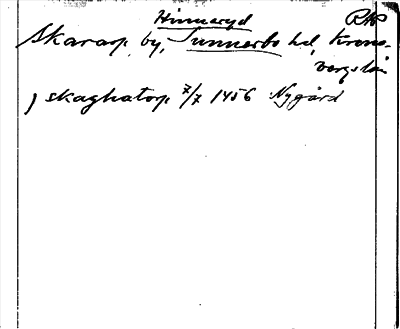 Hinneryd RAP
Skararp by, Sunnerbo hd, Krono-
bergs län
, skaghatorp 7/7 1456 Nygård